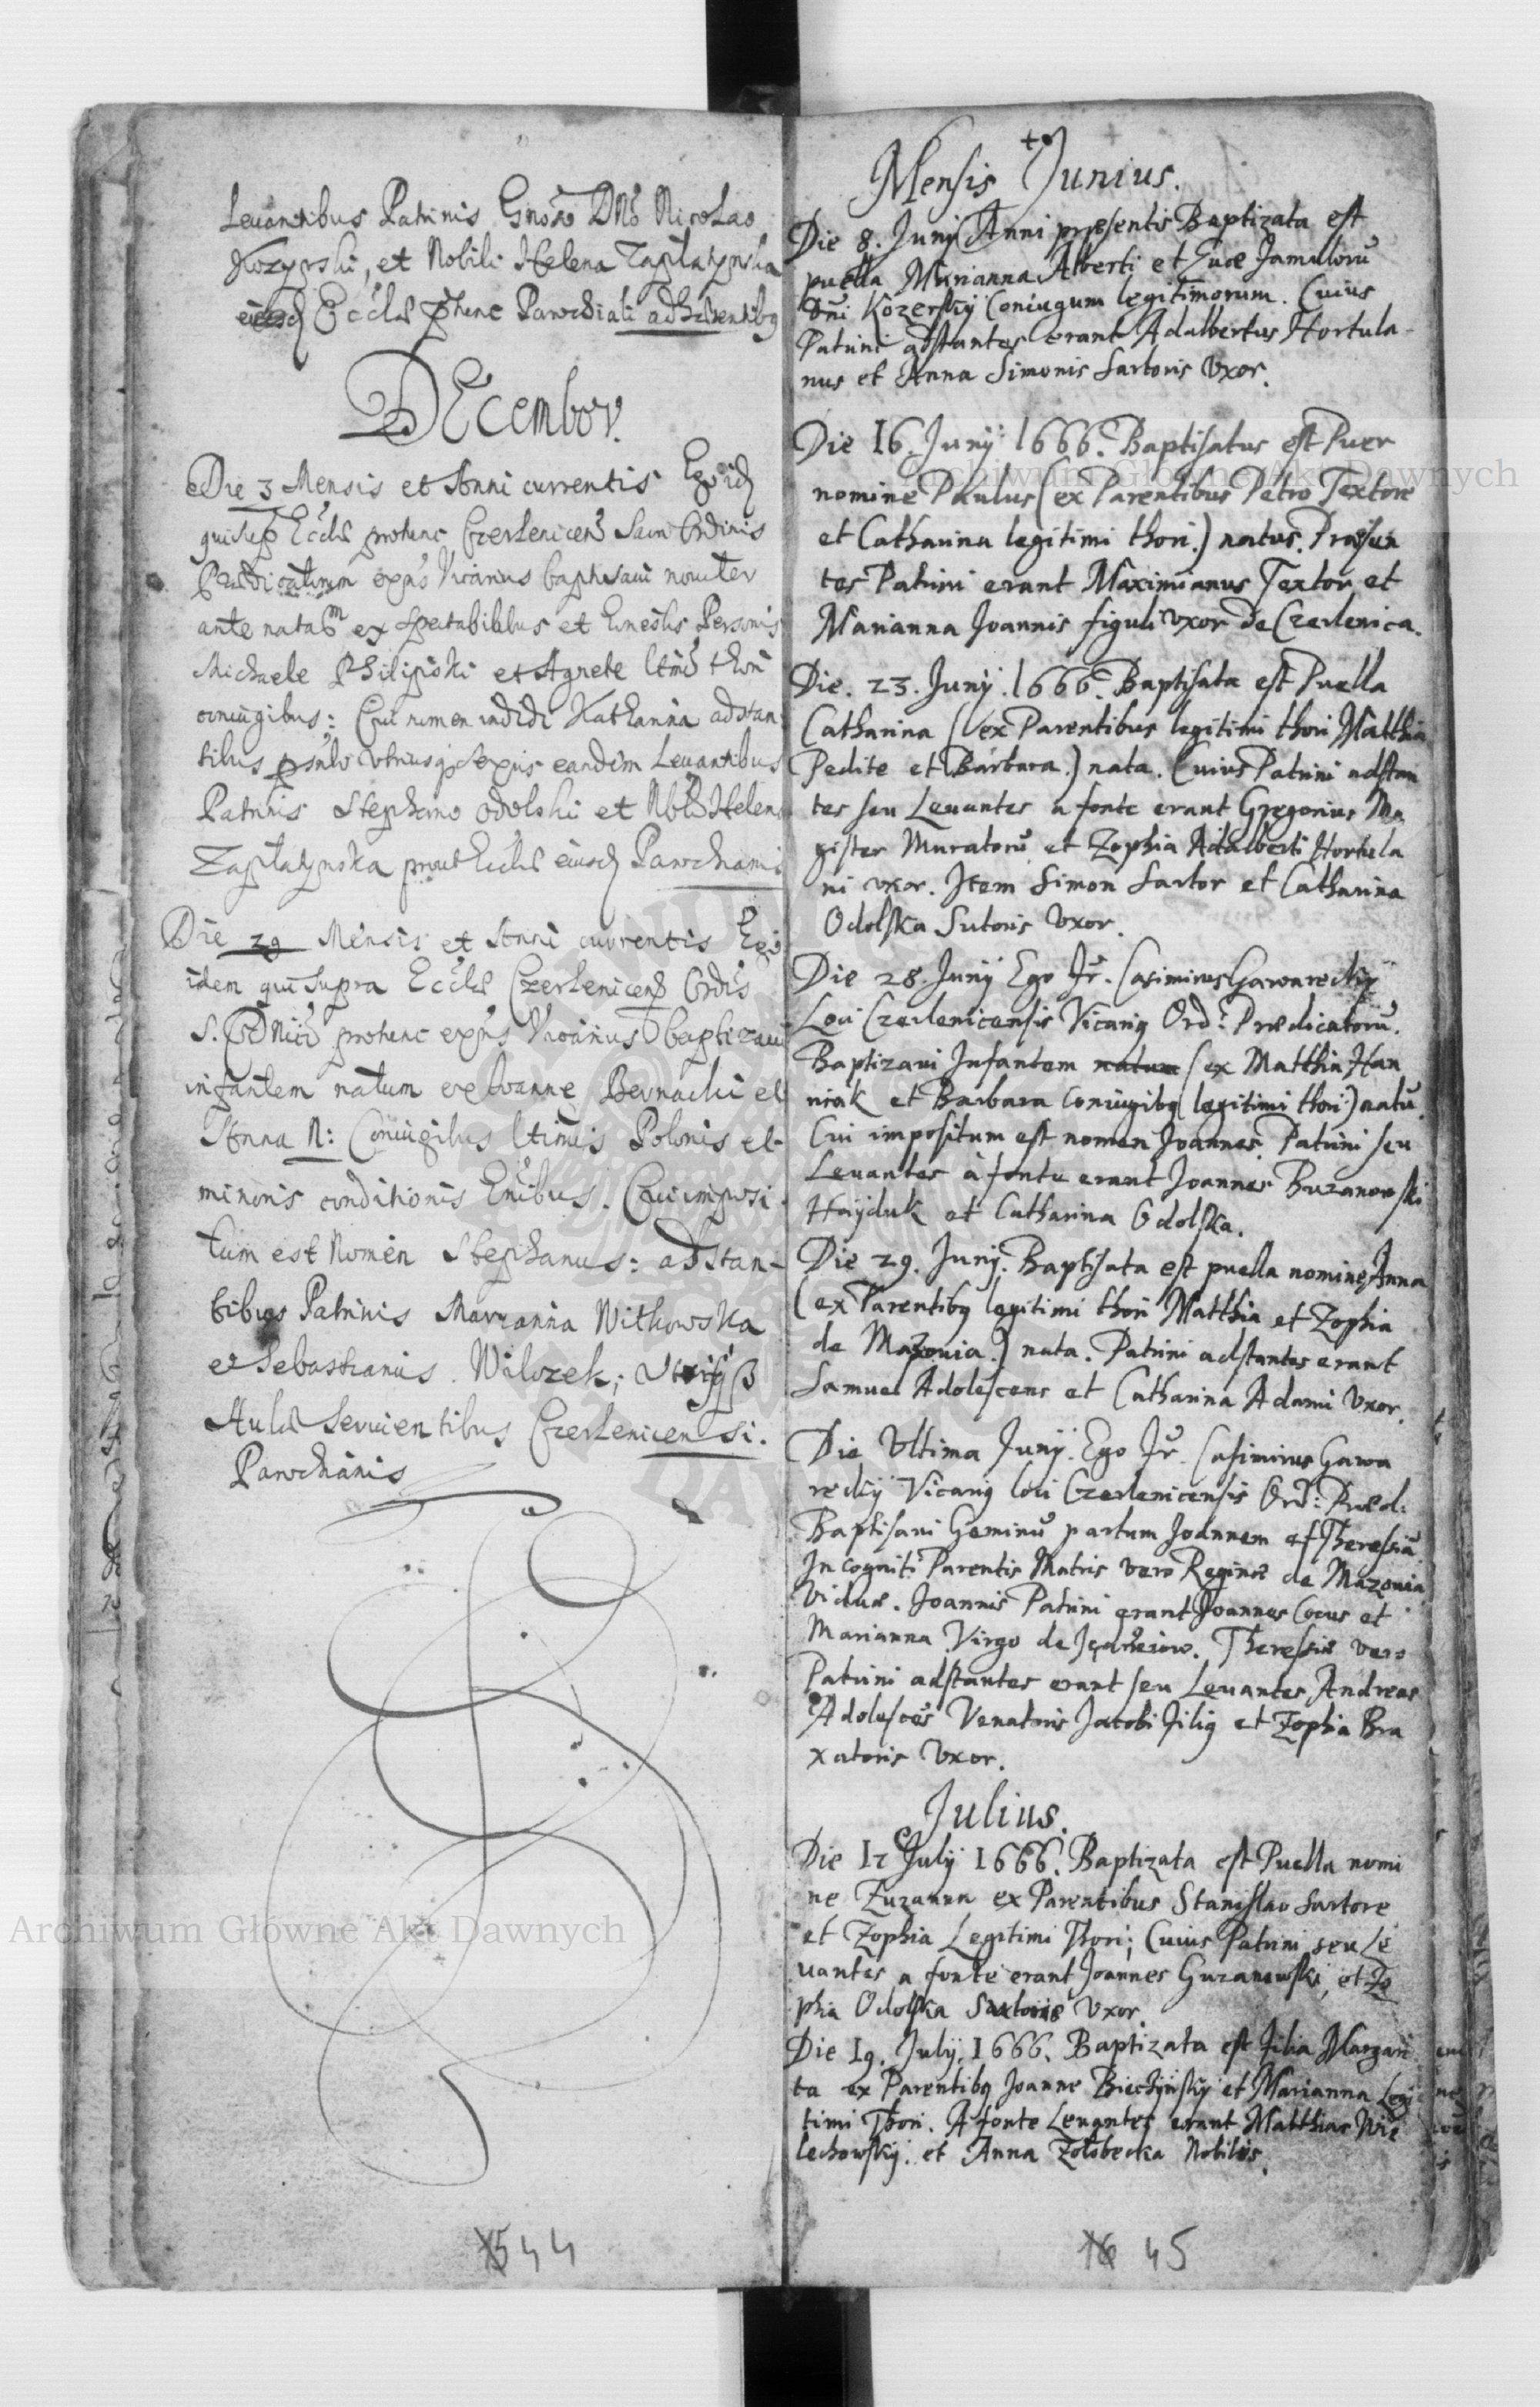 Levantibus Patrinis Gnoso Dno Nicolao
Kozyrski, et Nobili Helena Zaplatynska
Eccliae Parochiali adhaerentibq
DEcember.
Die 3 Mensis et Anni currentis Ego id
qui sup Eccliae prohunc Czerlenicen Sacri Ordinis
Praedicatorum expns Vicarius baptisavi noviter
ante natam ex spectabilibus et honestis Personis
Michaele Philipski et Agnete ltimi thori
coniugibus: Cui nomen indidi Katharina adstan
tibus utriusq sexus eandem Levantibus
Patrinis Stephano Odolski et Nobli Helena
Zaplatynska prout Eccliae eiusd Parochanis
Die 29 Mensis et Anni currentis Ego
idem qui supra Eccliae Czerlenicens Ordis
S. Dnici prohunc expns Vicarius baptizavi
infantem natum ex Ioanne Bernacki et
Anna N: Coniugibus ltimis Polonis et
minoris conditionis . Cui imposi
tum est Nomen Stephanus: adstan-
tibus Patrinis Marianna Witkowska
et Sebastianus Wilczek;
Aulae Servientibus Czerlenicensi.
Parochianis
1544
Mensis Junius.
Die 8. Junij Anni praesentis Baptizata est
puella Marianna Alberti et Evae famulorū
Dni Kozerskij Coniugum legitimorum. Cuius
Patrini adstantes erant Adalbertus Hortula-
nus et Anna Simonis Sartoris Uxor.
Die 16. Junij 1666. Baptisatus est Puer
nomine Paulus (ex Parentibus Petro Textore
et Catharina legitimi thori.) natus. Praesen
tes Patrini erant Maximianus Textor et
Marianna Joannis figuli uxor de Czerlenica.
Die. 23. Junij. 1666. Baptisata est Puella
Catharina (ex Parentibus legitimi thori Matthia
Pedite et Barbara.) nata. Cuius Patrini adstan
tes seu Levantes a fonte erant Gregorius Ma
gister Muratorū et Zophia Adalberti Hortula
ni uxor. Item Simon Sartor et Catharina
Odolska Sutoris Uxor.
Die 28. Junij Ego Fr. Casimirus Gawareckij
Loci Czerlenicensis Vicariq Ord: Praedicatorū.
Baptizavi Infantem natum (ex Matthia Han
niak et Barbara Coniugibq legitimi thori) natū.
Cui impositum est nomen Joannes. Patrini seu
Levantes à fonte erant Joannes Buzanowski
Hayduk et Catharina Odolska.
Die 29. Junij. Baptisata est puella nomine Anna
(ex Parentibq legitimi thori Matthia et Zophia
de Mazonia.) nata. Patrini adstantes erant
Samuel Adolescens et Catharina Adami Uxor.
Die Ultima Junij. Ego Fr. Casimirus Gawa
reckij Vicariq loci Czerlenicensis Ord: Praed:
Baptisavi Geminū partum Joannem et Theresiā
Incogniti Parentis Matris vero Reginae de Mazonia
Viduae. Joannis Patrini erant Joannes Cocus et
Marianna Virgo de . Theresiae vero
Patrini adstantes erant seu Levantes Andreas
Adolescēs Venatoris Jacobi filiq et Zophia Bra
xatoris Uxor.
Julius.
Die 12 Julij 1666. Baptizata est Puella nomi
ne Zuzanna ex Parentibus Stanislao Sartore
et Zophia Legitimi Thori; Cuius Patrini seu Le
vantes a fonte erant Joannes Guzanowski, et Zo
phia Odolska Sartoris Uxor.
Die 19. Julij. 1666. Baptizata est filia Margari
ta ex Parentibq Joanne Biechijnskij et Marianna Legi
timi Thori. A fonte Levantes erant Matthias Wie
lechowskij. et Anna Zołobecka Nobiles.
16 45
Archiwum Główne Akt Dawnych
Archiwum Główne Akt Dawnych